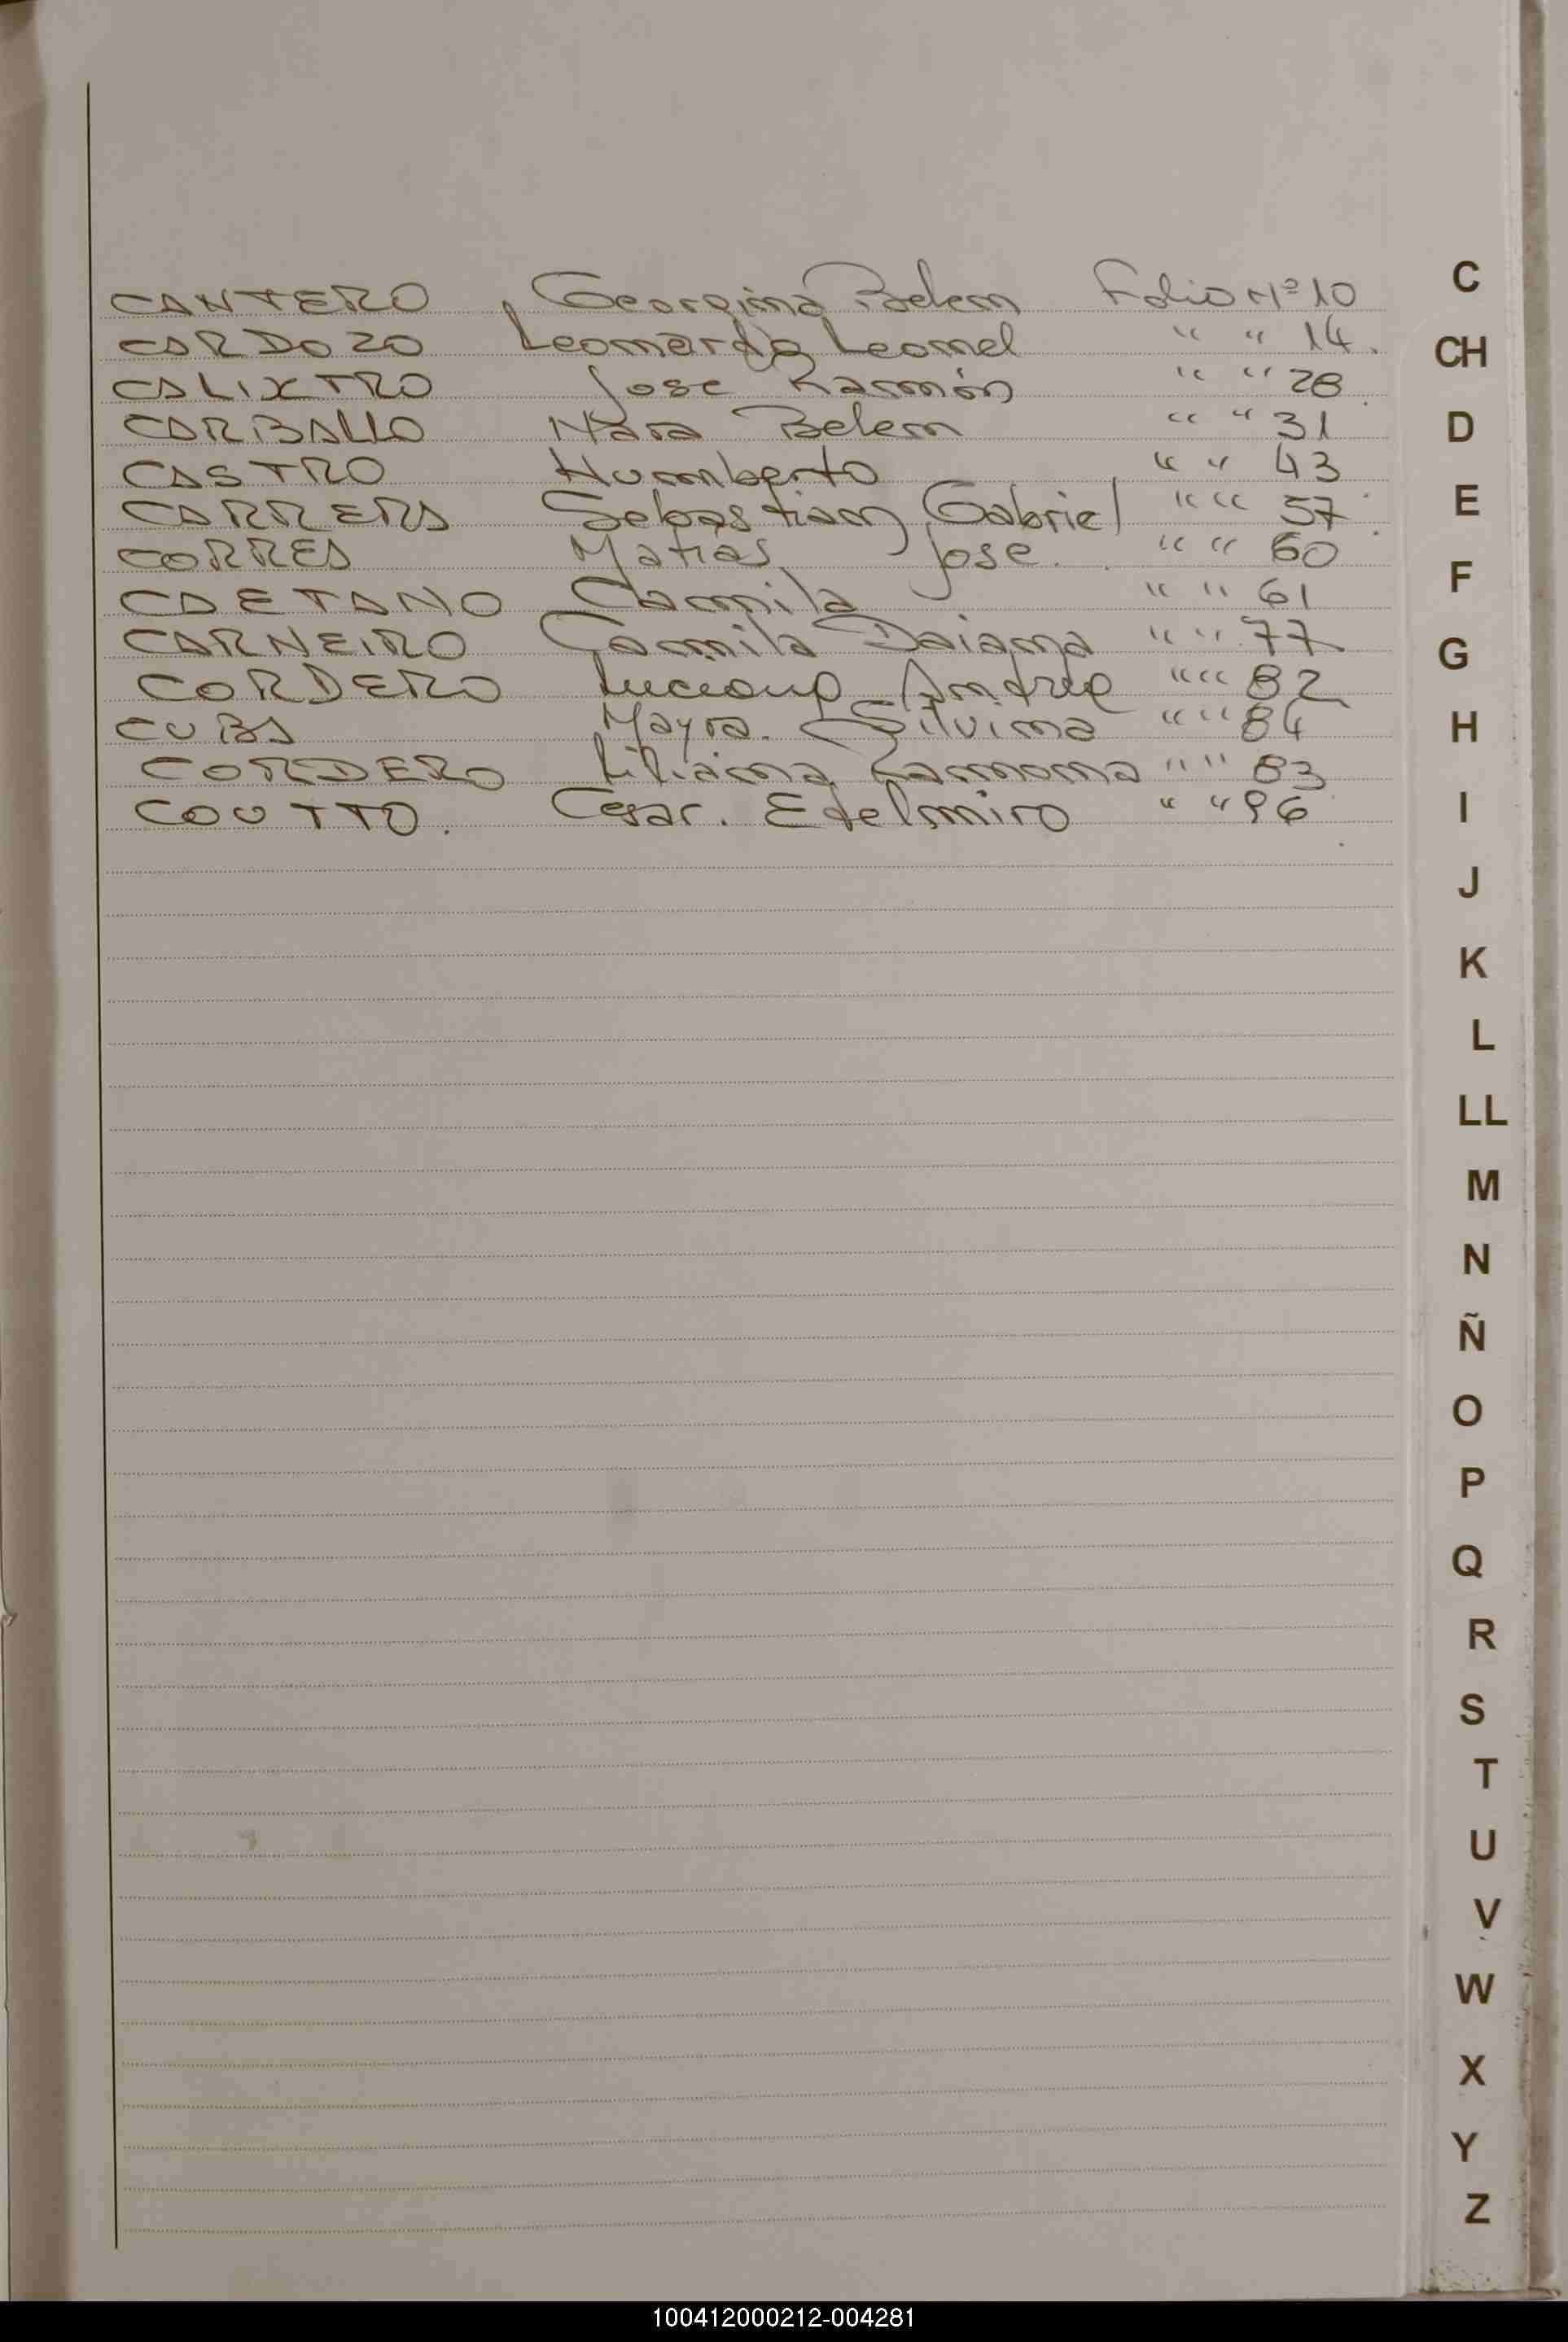 CANTERO Georgina Belem Folio Nº 10
CARDOZO Leonardo Leonel " " 14.
CALIXTRO Jose Ramón " " 28
CARBALLO Nara Belem " " 31
CASTRO Humberto " " 43
CARRERA Sebastian Gabriel " " 57
CORREA Matias Jose. " " 60
CAETANO Camila " " 61
CARNEIRO Camila Daiana " " 77
CORDERO Andrea " " 82
CUBA Mayra. Silvina " " 84
CORDERO Liliana Ramona " " 83
COUTTO. Cesar. Edelmiro " " 96
C
CH
D
E
F
G
H
I
J
K
L
LL
M
N
Ñ
O
P
Q
R
S
T
U
V
W
X
Y
Z
100412000212-004281